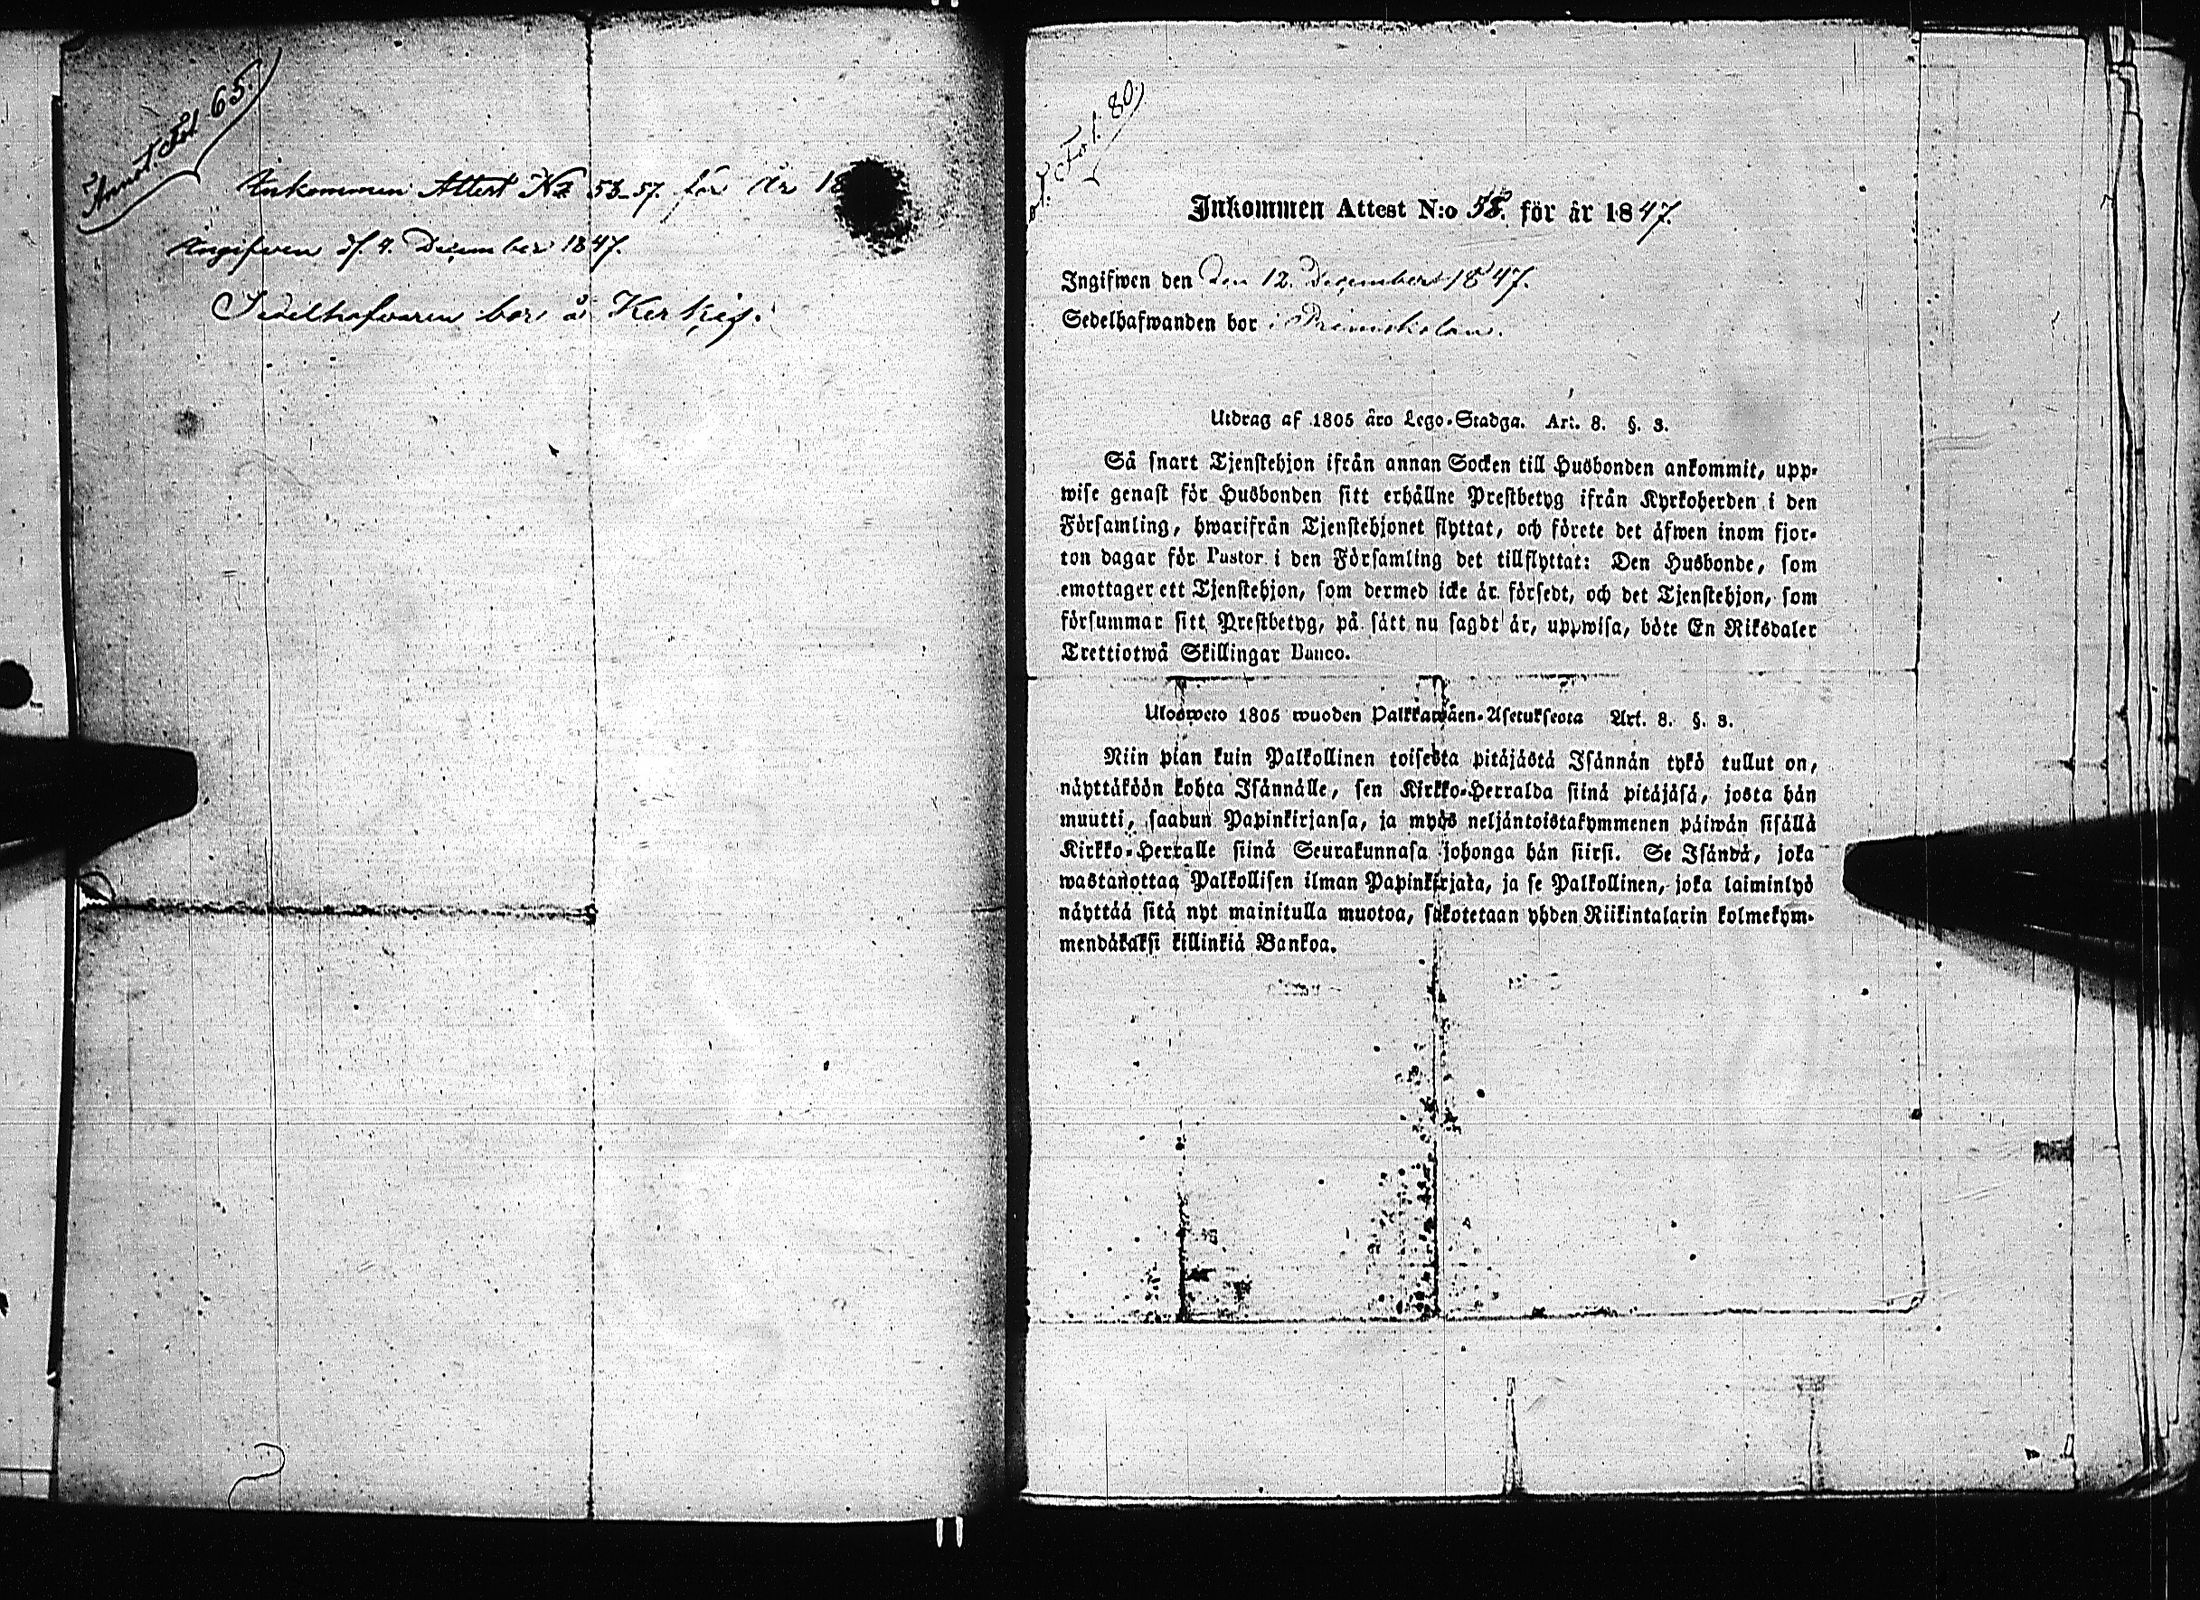 Annot. Fol. 65.
Inkommen Attest No 53-57. för År 18
Ingifven d. 4. December 1847.
Sedelhafvaren bor å Kerkis.
Fol. 80.
Inkommen Attest N:o 58. för år 1847.
Ingifwen den den 12. December 1847.
Sedelhafwanden bor i
Utdrag af 1805 års Lego-Stadga. Art. 8. §. 3.
Så snart Tjenstehjon ifrån annan Socken till Husbonden ankommit, upp-
wise genast för Husbonden sitt erhållne Prestbetyg ifrån Kyrkoherden i den
Församling, hwarifrån Tjenstehjonet flyttat, och förete det äfwen inom fjor-
ton dagar för Pastor i den Församling det tillflyttat: Den Husbonde, som
emottager ett Tjenstehjon, som dermed icke är försedt, och det Tjenstehjon, som
försummar sitt Prestbetyg, på sätt nu sagdt är, uppwisa, böte En Riksdaler
Trettiotwå Skillingar Banco.
Ulosweto 1805 wuoden Palkkawäen-Asetuksesta Art. 8. §. 3.
Niin pian kuin Palkollinen toisesta pitäjästä Isännän tykö tullut on,
näyttäköön kohta Isännälle, sen Kirkko-Herralda siinä pitäjäsä, josta hän
muutti, saadun Papinkirjansa, ja myös neljäntoistakymmenen päiwän sisällä
Kirkko-Herralle siinä Seurakunnasa johonga hän siirsi. Se Isändä, joka
wastanottaa Palkollisen ilman Papinkirjata, ja se Palkollinen, joka laiminlyö
näyttää sitä nyt mainitulla muotoa, sakotetaan yhden Riikintalarin kolmekym-
mendäkaksi killinkiä Bankoa.